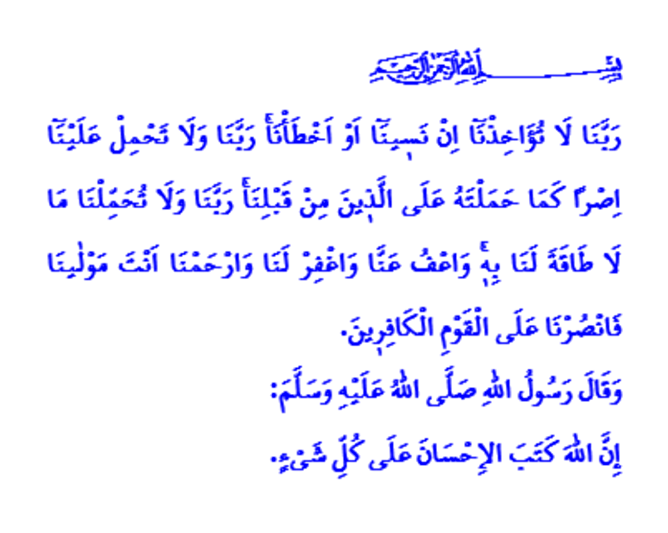 بِسْمِ اللهِ الرَّحْمٰنِ الرَّحِيمِ
رَبَّنَا لَا تُؤَاخِذْنَٓا اِنْ نَسٖينَٓا اَوْ اَخْطَأْنَاۚ رَبَّنَا وَلَا تَحْمِلْ عَلَيْنَٓا
اِصْرًا كَمَا حَمَلْتَهُ عَلَى الَّذٖينَ مِنْ قَبْلِنَاۚ رَبَّنَا وَلَا تُحَمِّلْنَا مَا
لَا طَاقَةَ لَنَا بِهٖۚ وَاعْفُ عَنَّا وَاغْفِرْ لَنَا وَارْحَمْنَا اَنْتَ مَوْلٰينَا
فَانْصُرْنَا عَلَى الْقَوْمِ الْكَافِرٖينَ.
وَقَالَ رَسُولُ اللهِ صَلَّى اللهُ عَلَيْهِ وَسَلَّمَ:
إِنَّ اللهَ كَتَبَ الإِحْسَانَ عَلَى كُلِّ شَيْءٍ.